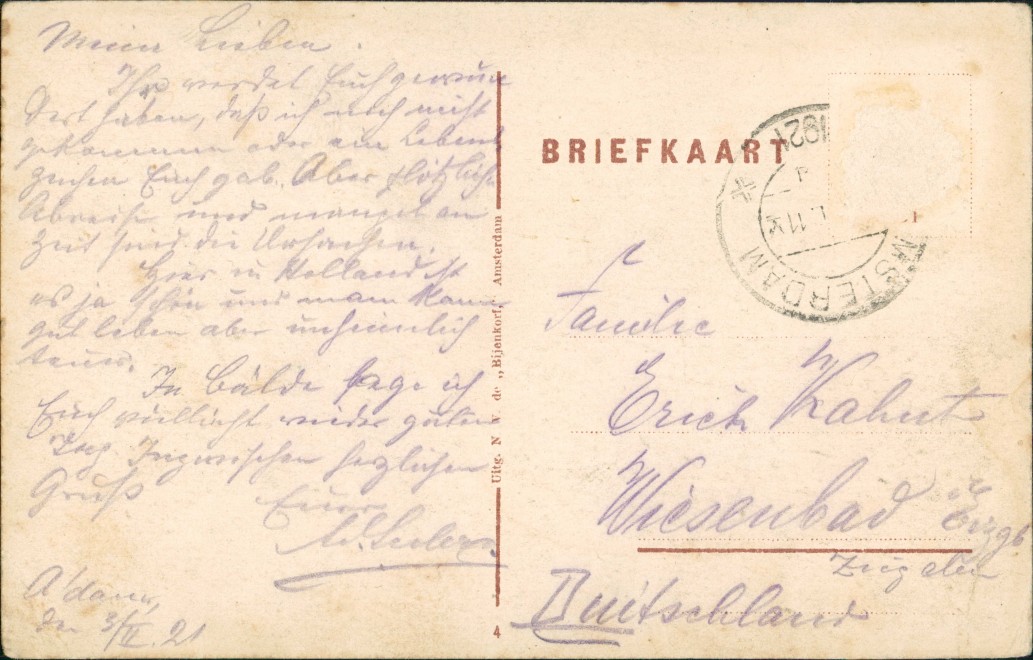 Meine Lieben.
Ihr werdet Euch gewun
dert haben, daß ich noch nicht
gekommen oder ein Lebens
zeichen Euch gab. Aber plötzliche
Abreise und mangel an
Zeit sind die Ursachen.
Hier in Holland ist
es ja schön und man kann
gut leben aber unheimlich
teuer.
In bälde sage ich
Euch vielleicht wieder guten
Tag. Inzwischen herzlichen
Gruß
Euer
A'dam,
den 3/II. 21
Uitg. N. V. de „Bijenkorf," Amsterdam
4
BRIEFKAART
AMSTERDAM
1921
Familie
Erich Kahnt
Wiesenbad
Erzgb
Duitschland